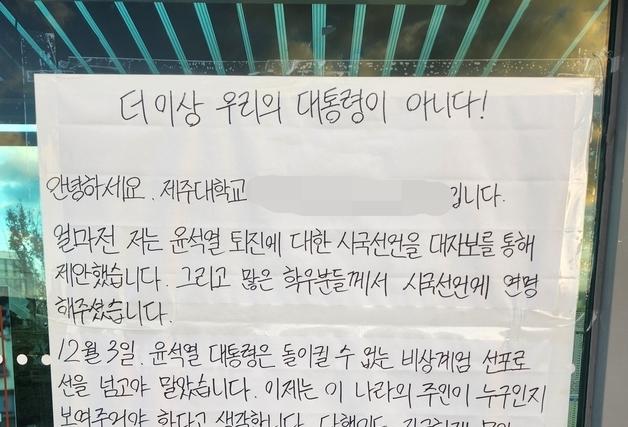 더이상 우리의 대통령이 아니다!
안녕하세요. 제주대학교 입니다.
얼마전 저는 윤석열 퇴진에 대한 시국선언을 대자보를 통해
제안했습니다. 그리고 많은 학우분들께서 시국선언에 연명
해주셨습니다.
12월 3일. 윤석열 대통령은 돌이킬 수 없는 비상계엄 선포로
선을 넘고야 말았습니다. 이제는 이 나라의 주인이 누구인지
보여주어야 한다고 생각합니다.